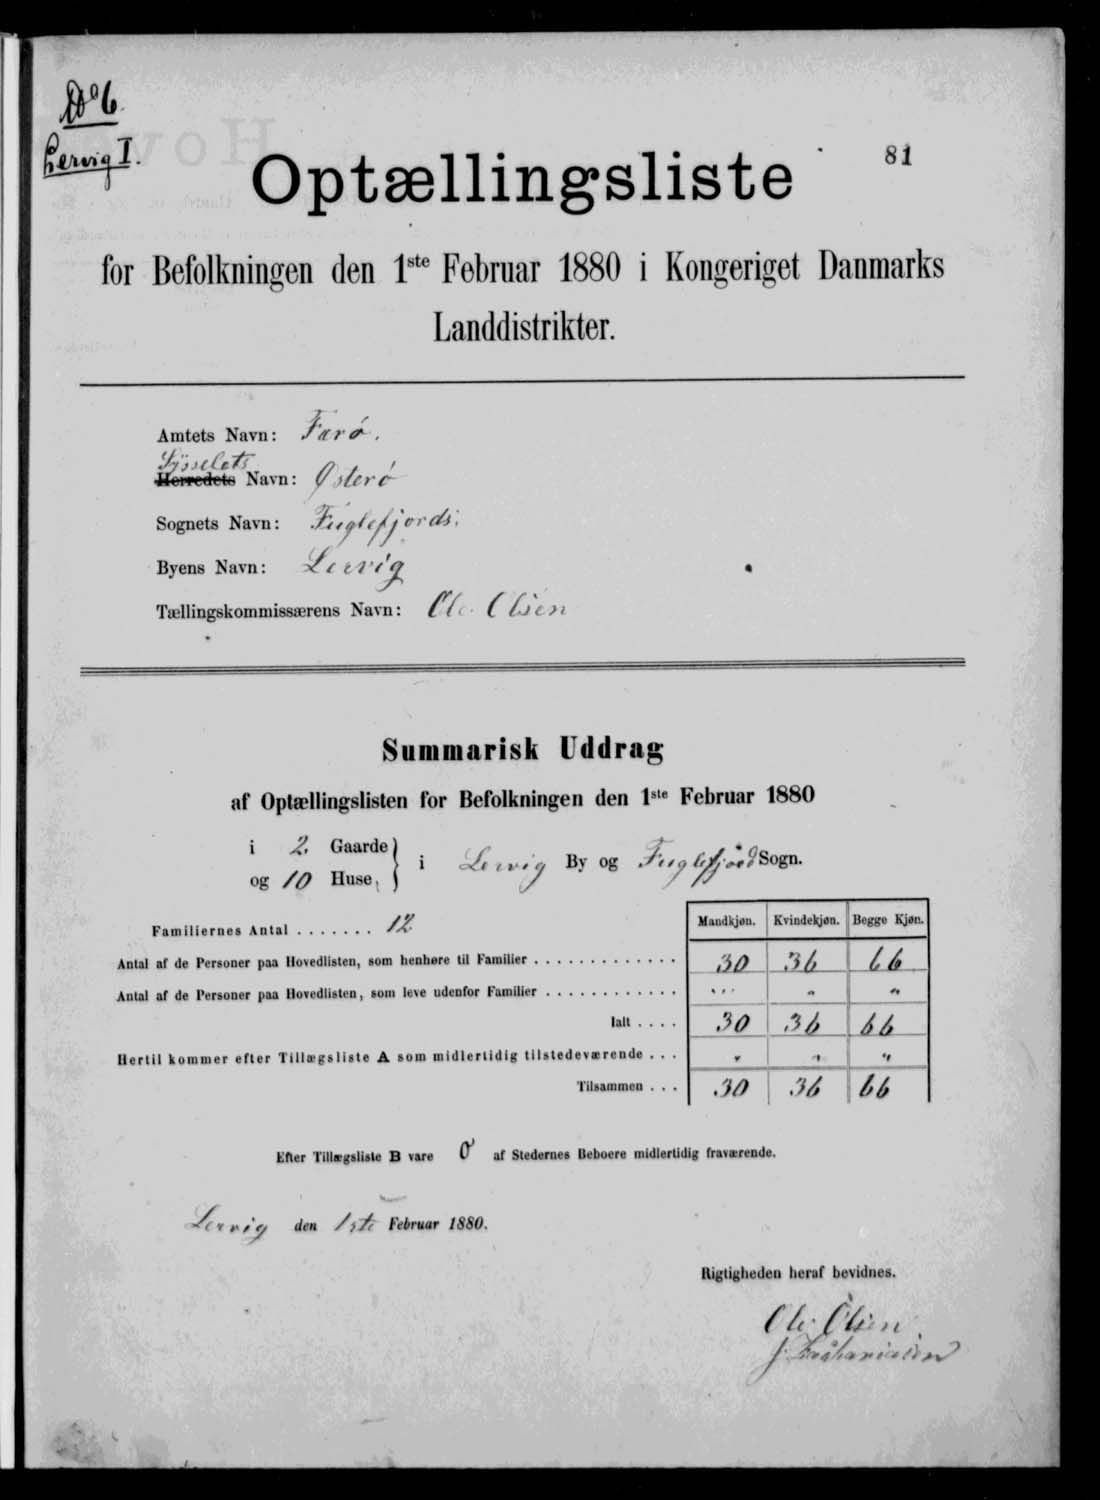 No 6.
Lervig I.
81
Optællingsliste
for Befolkningen den 1ste Februar 1880 i Kongeriget Danmarks
Landdistrikter.
Amtets Navn: Færø.
Sysselets
Herredets Navn: Østerø
Sognets Navn: Fuglefjords.
Byens Navn: Lervig
Tællingskommissærens Navn: Ole Olsen
Summarisk Uddrag
af Optællingslisten for Befolkningen den 1ste Februar 1880
i 2. Gaarde
og 10 Huse,
} i Lervig By og Fuglefjord Sogn.
Mandkjøn. Kvindekjøn. Begge Kjøn.
Familiernes Antal ....... 12
Antal af de Personer paa Hovedlisten, som henhøre til Familier ............. 30 36 66
Antal af de Personer paa Hovedlisten, som leve udenfor Familier ............ " " "
Ialt .... 30 36 66
Hertil kommer efter Tillægsliste A som midlertidig tilstedeværende ... " " "
Tilsammen ... 30 36 66
Efter Tillægsliste B vare 0 af Stedernes Beboere midlertidig fraværende.
Lervig den 1ste Februar 1880.
Rigtigheden heraf bevidnes.
Ole Olsen
J.